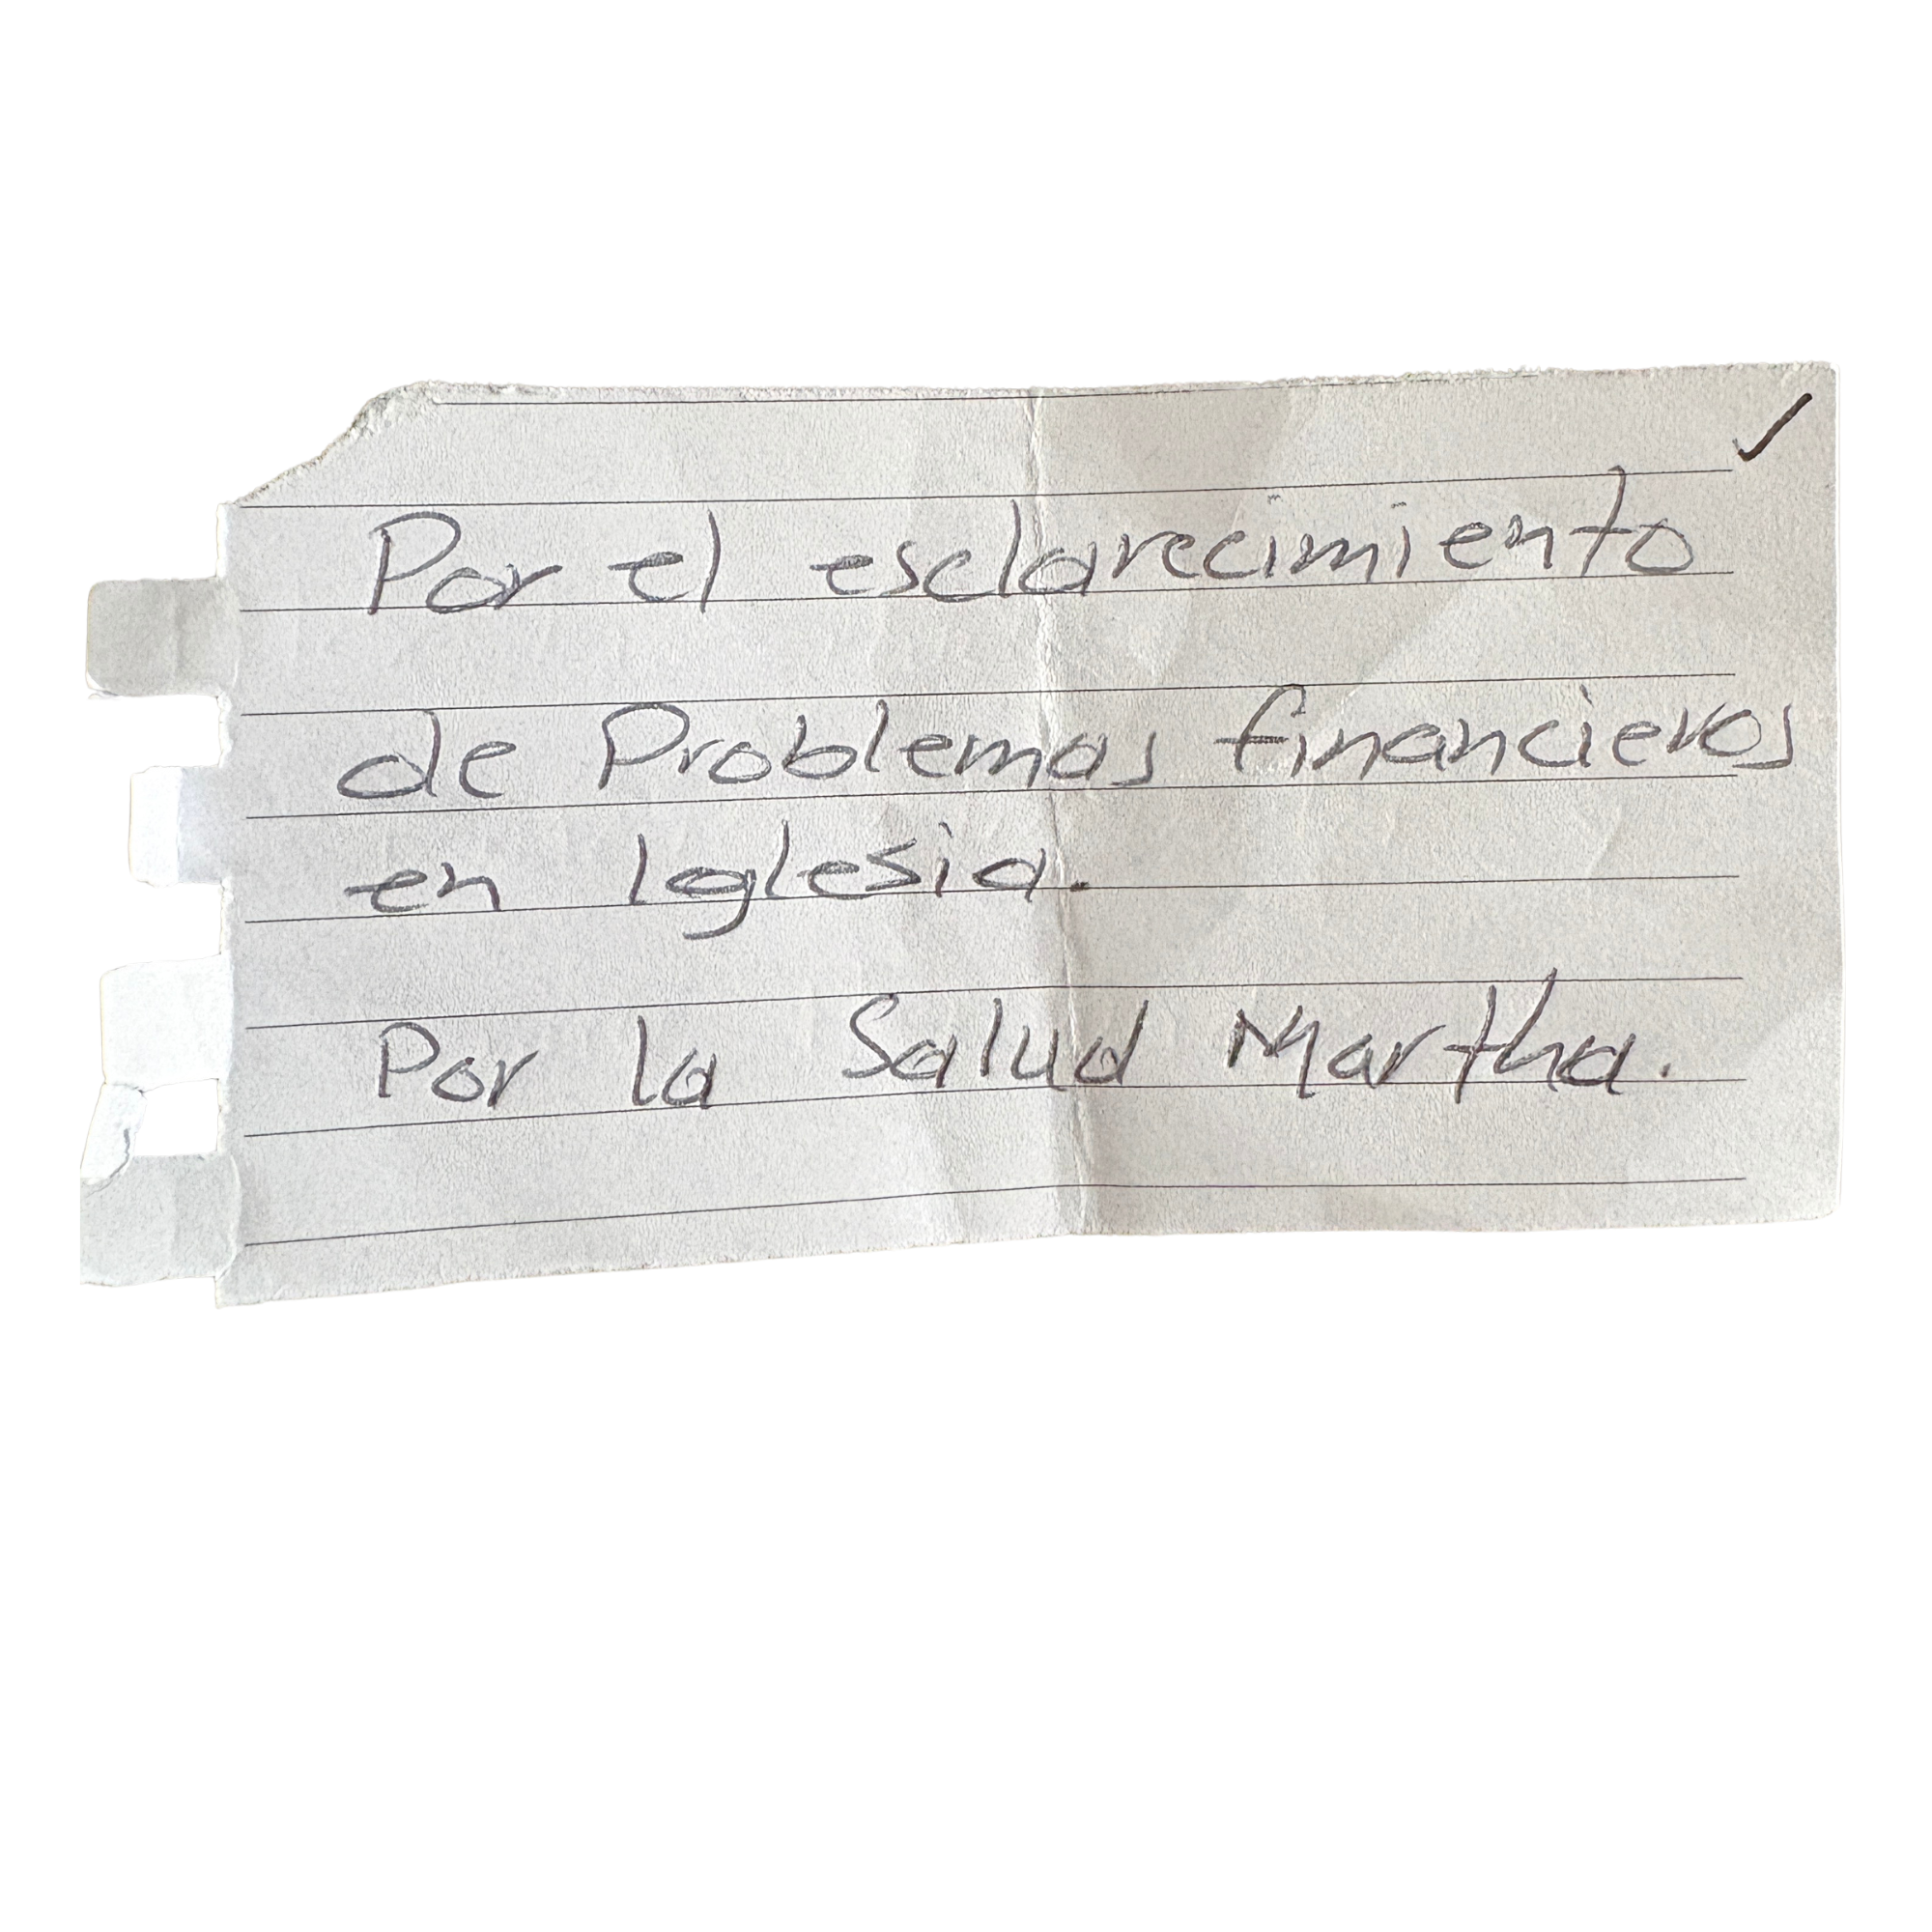 Por el esclarecimiento
de Problemas financieros
en Iglesia.
Por la Salud Martha.